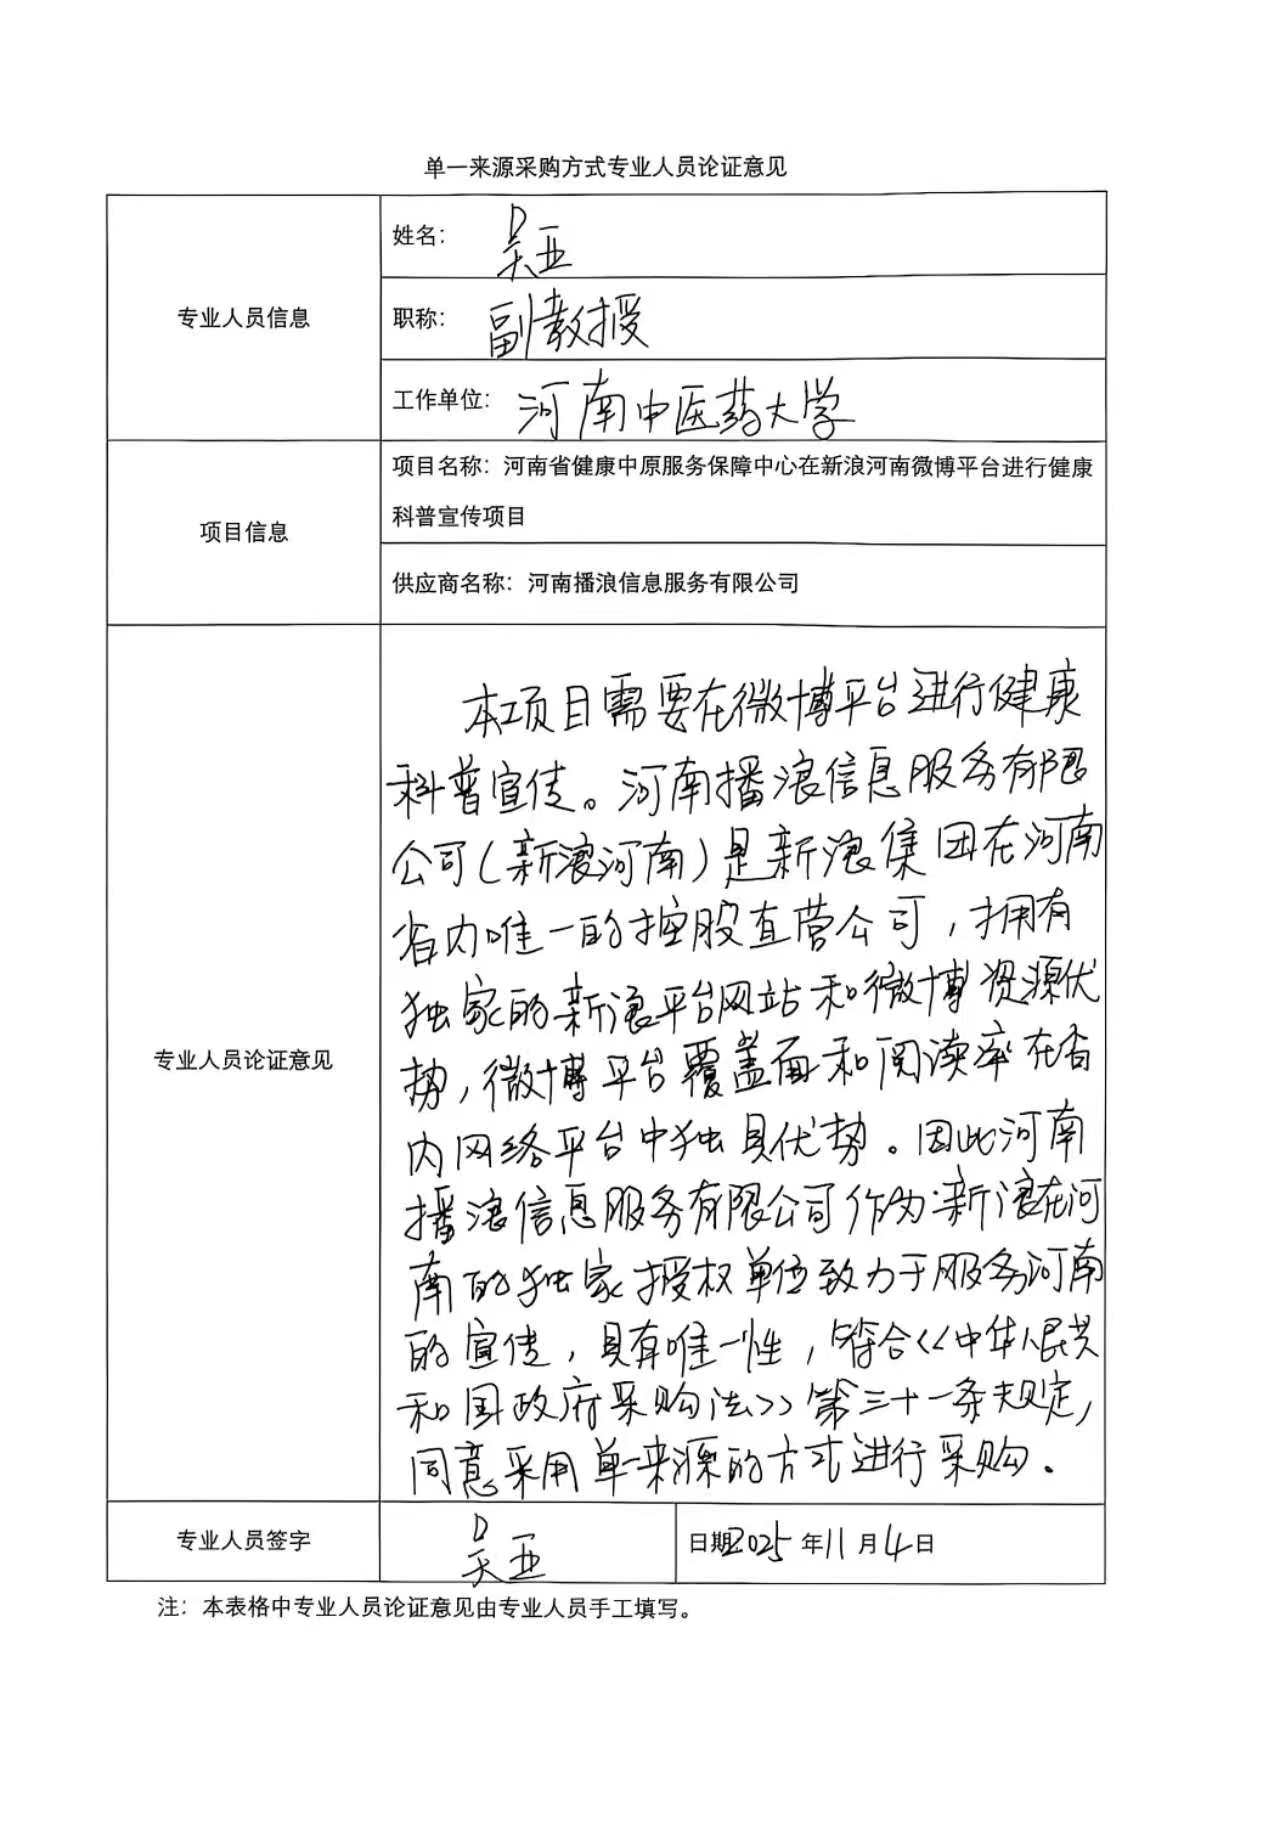 单一来源采购方式专业人员论证意见
专业人员信息
姓名：吴亚
职称：副教授
工作单位：河南中医药大学
项目信息
项目名称：河南省健康中原服务保障中心在新浪河南微博平台进行健康
科普宣传项目
供应商名称：河南播浪信息服务有限公司
专业人员论证意见
本项目需要在微博平台进行健康
科普宣传。河南播浪信息服务有限
公司（新浪河南）是新浪集团在河南
省内唯一的控股直营公司，拥有
独家的新浪平台网站和微博资源优
势，微博平台覆盖面和阅读率在省
内网络平台中独具优势。因此河南
播浪信息服务有限公司作为新浪在河
南的独家授权单位致力于服务河南
的宣传，具有唯一性，符合《中华人民共
和国政府采购法》第三十一条规定，
同意采用单一来源的方式进行采购。
专业人员签字
吴亚
日期2025年11月4日
注：本表格中专业人员论证意见由专业人员手工填写。